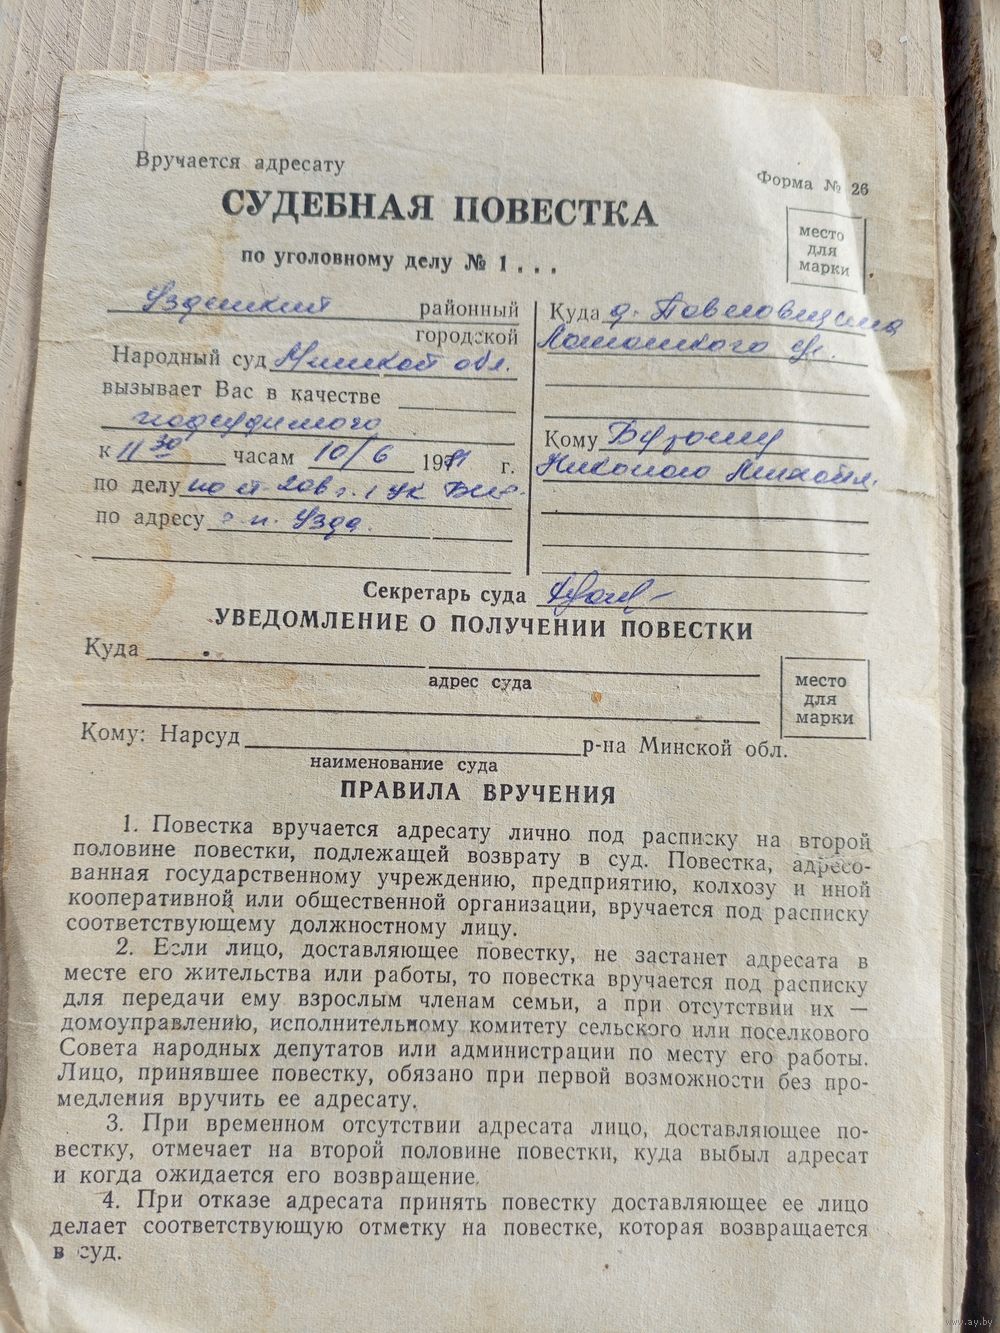 Вручается адресату
Форма № 26
СУДЕБНАЯ ПОВЕСТКА
по уголовному делу № 1 . . .
место
для
марки
Узденский районный
городской
Народный суд Минской обл.
вызывает Вас в качестве
подсудимого
к 11 30 часам 10/6 19 г.
по делу по ст. 208 ч. 1 УК
по адресу г. п. Узда.
Куда д.
Кому
Николаю
Секретарь суда
УВЕДОМЛЕНИЕ О ПОЛУЧЕНИИ ПОВЕСТКИ
Куда
адрес суда
место
для
марки
Кому: Нарсуд р-на Минской обл.
наименование суда
ПРАВИЛА ВРУЧЕНИЯ
1. Повестка вручается адресату лично под расписку на второй
половине повестки, подлежащей возврату в суд. Повестка, адресо-
ванная государственному учреждению, предприятию, колхозу и иной
кооперативной или общественной организации, вручается под расписку
соответствующему должностному лицу.
2. Если лицо, доставляющее повестку, не застанет адресата в
месте его жительства или работы, то повестка вручается под расписку
для передачи ему взрослым членам семьи, а при отсутствии их —
домоуправлению, исполнительному комитету сельского или поселкового
Совета народных депутатов или администрации по месту его работы.
Лицо, принявшее повестку, обязано при первой возможности без про-
медления вручить ее адресату.
3. При временном отсутствии адресата лицо, доставляющее по-
вестку, отмечает на второй половине повестки, куда выбыл адресат
и когда ожидается его возвращение.
4. При отказе адресата принять повестку доставляющее ее лицо
делает соответствующую отметку на повестке, которая возвращается
в суд.
www.ay.by